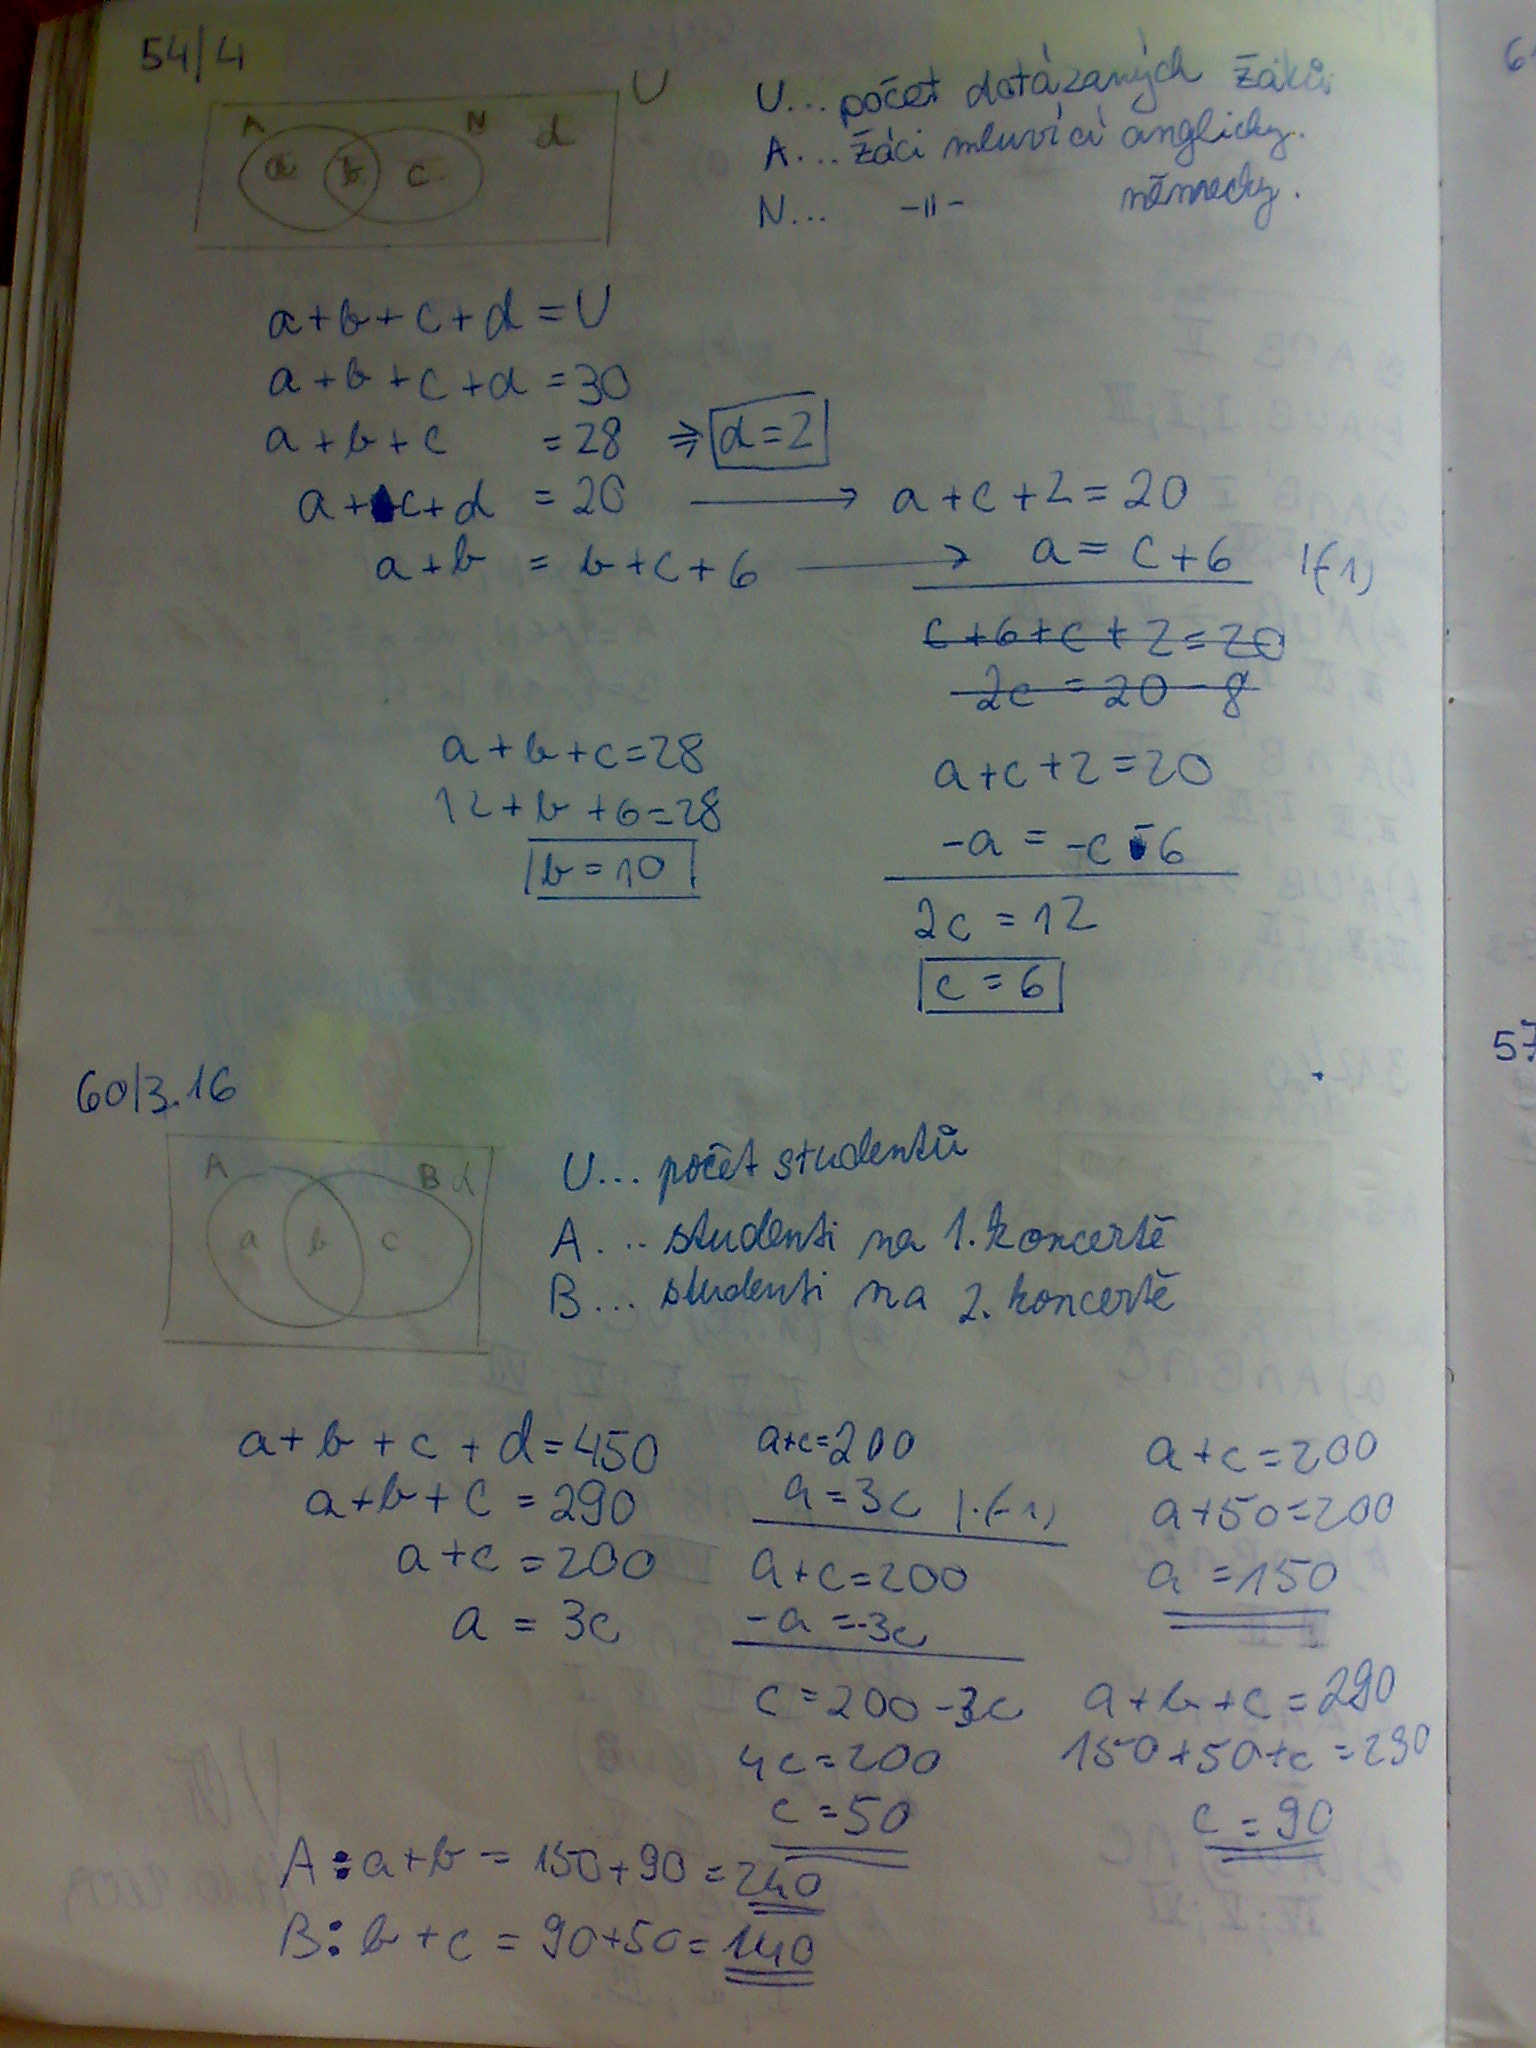 54/4
U
A N d
a b c
U... počet dotázaných žáků
A... žáci mluvící anglicky.
N... -||- německy.
a+b+c+d=U
a+b+c+d=30
a+b+c =28 ⇒ d=2
a+c+d =20 → a+c+2=20
a+b = b+c+6 → a=c+6 |(-1)
c+6+c+2=20
2c=20-8
a+b+c=28
12+b+6=28
b=10
a+c+2=20
-a=-c-6
2c=12
c=6
60/3.16
A B d
a b c
U... počet studentů
A... studenti na 1. koncertě
B... studenti na 2. koncertě
a+b+c+d=450
a+b+c=290
a+c=200
a=3c
a+c=200
a=3c |·(-1)
a+c=200
-a=-3c
c=200-3c
4c=200
c=50
a+c=200
a+50=200
a=150
a+b+c=290
150+50+c=290
c=90
A: a+b=150+90=240
B: b+c=90+50=140
57